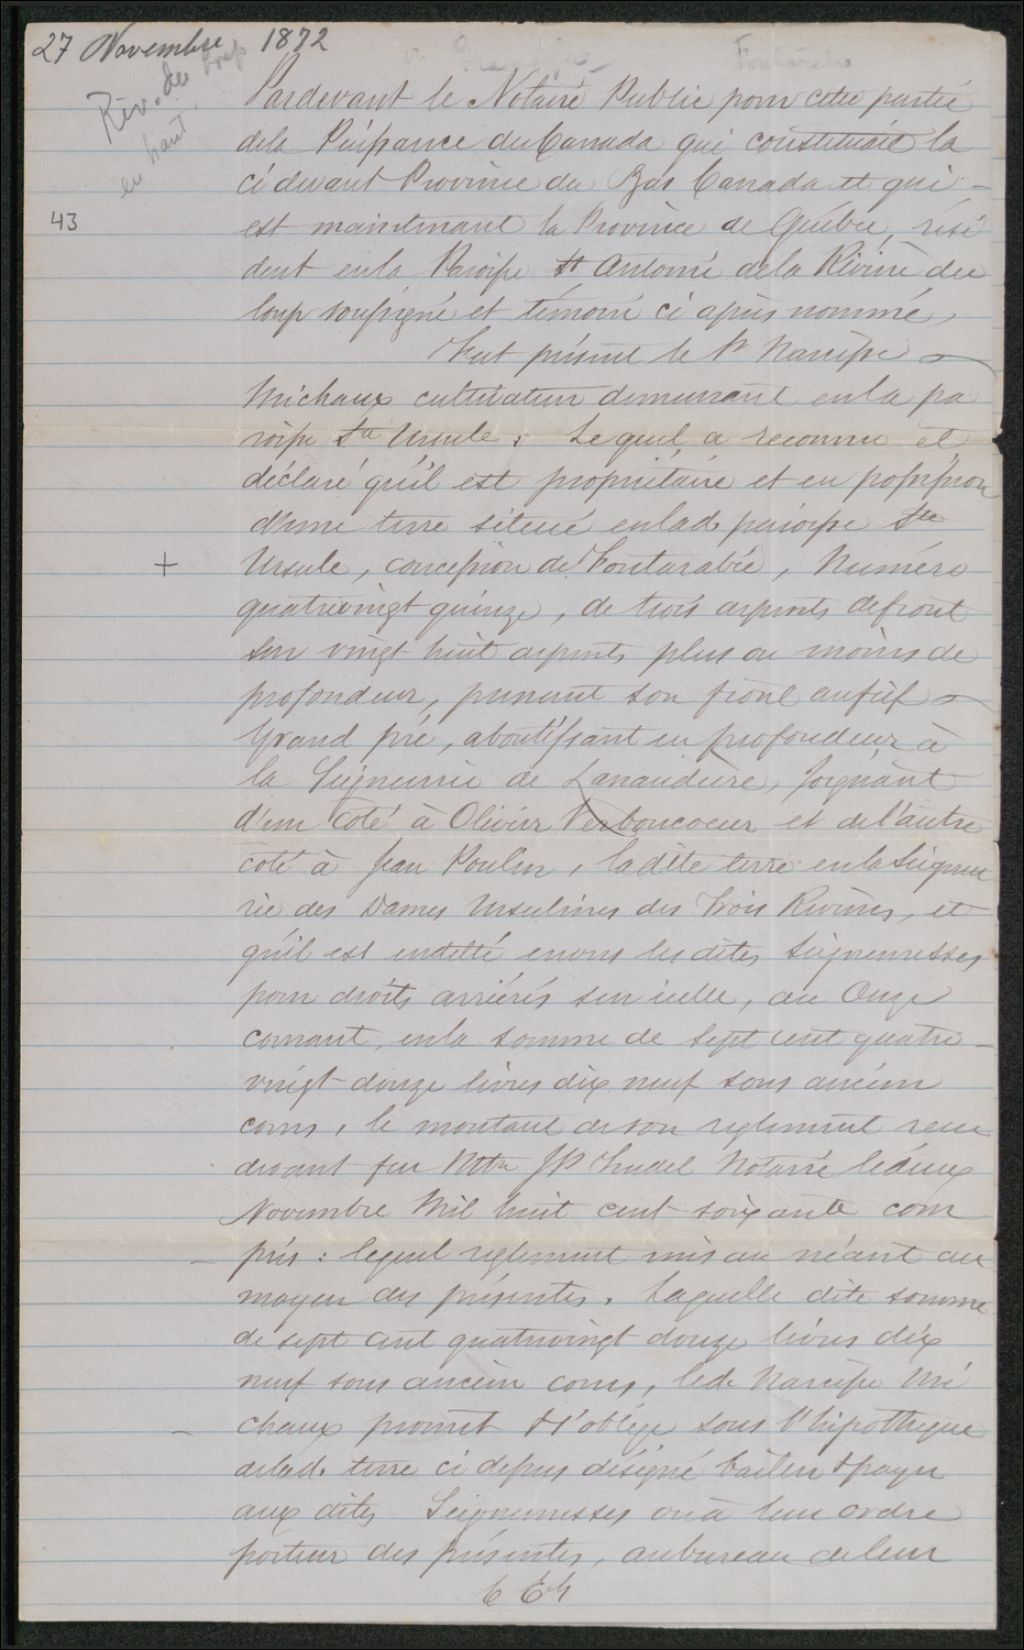 27 Novembre 1872
Riv. du Loup
en haut
43
Pardevant le Notaire Public pour cette partie
dela Puissance du Canada qui constituait la
ci devant Province du Bas Canada et qui
est maintenant la Province de Québec, rési
dent enla Paroisse St Antoine dela Rivière du
loup soussigné et témoin ci après nommé,
Fut présent le Sr Narcisse
Michaux cultivateur demeurant enla pa
roisse Ste Ursule; Lequel a reconnu et
déclaré qu'il est propriétaire et en possession
d'une terre située enlad. paroisse Ste
+ Ursule, concession de Fontarabie, Numéro
quatrevingt quinze, de trois arpents defront
sur vingt huit arpents plus ou moins de
profondeur, prenant son front aufief
Grand pré, aboutissant en profondeur à
la Seigneurie de Lanaudière, Joignant
d'un coté à Olivier Verboncoeur et del'autre
coté à Jean Poulin, ladite terre enla Seigneu
rie des Dames Ursulines des Trois Rivières, et
qu'il est endetté envers lesdites Seigneuresses
pour droits arriérés sur icelle, au Onze
courant, enla somme de sept cent quatre
vingt douze livres dix neuf sous ancien
cours, le montant deson reglement reçu
devant feu Mtre JP Trudel Notaire ledeux
Novembre Mil huit cent soixante com
pris: lequel reglement mis au néant au
moyen des présentes. Laquelle dite somme
de sept cent quatrevingt douze livres dix
neuf sous ancien cours, led. Narcisse Mi
chaux promet & s'oblige sous l'hipotheque
delad. terre ci dessus désigné bailler & payer
aux dites Seigneuresses ou à leur ordre
porteur des présentes, aubureau deleur